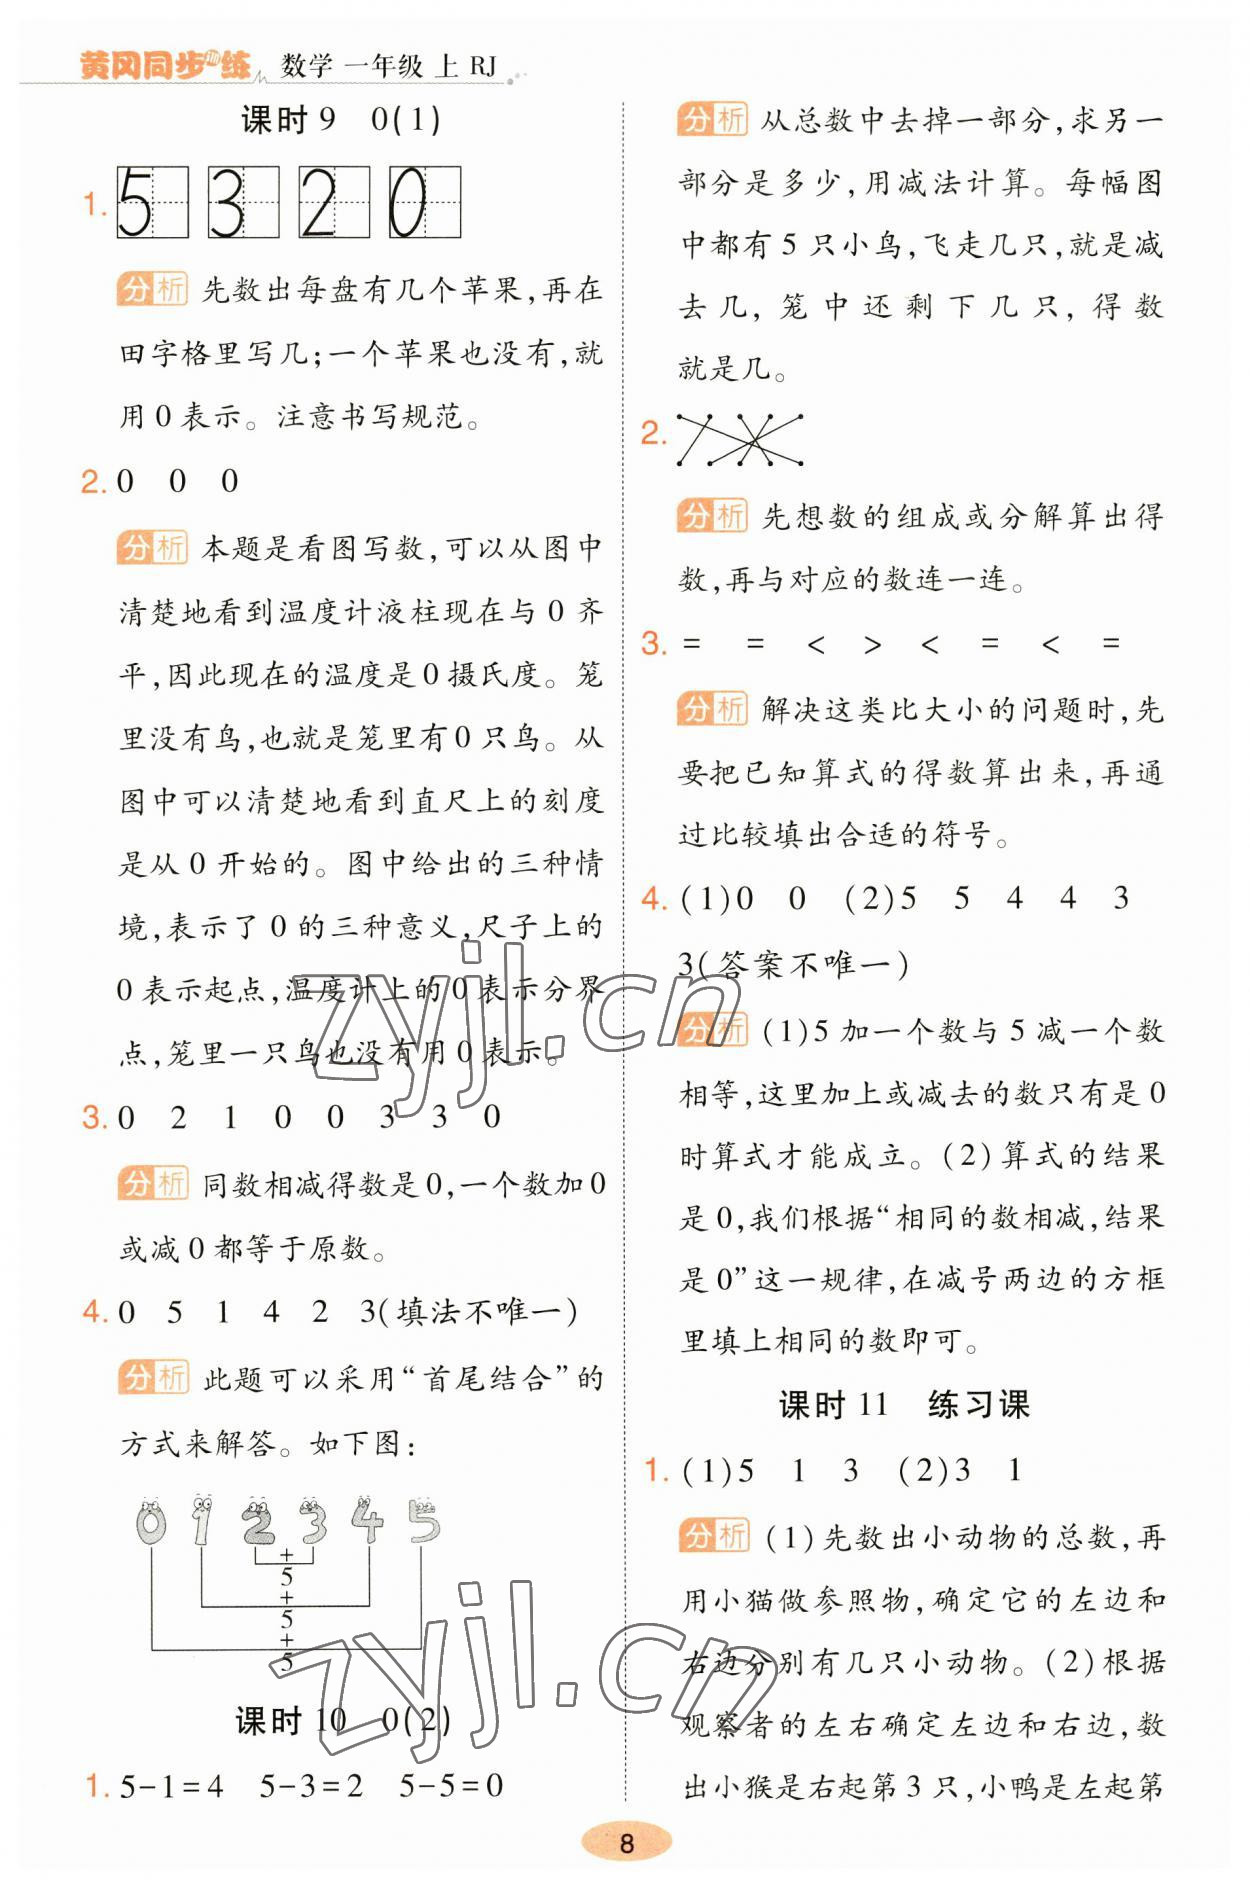 黄冈同步训练 数学 一年级 上 RJ
课时9 0(1)
1. 5 3 2 0
分析 先数出每盘有几个苹果,再在
田字格里写几;一个苹果也没有,就
用0表示。注意书写规范。
2. 0 0 0
分析 本题是看图写数,可以从图中
清楚地看到温度计液柱现在与0齐
平,因此现在的温度是0摄氏度。笼
里没有鸟,也就是笼里有0只鸟。从
图中可以清楚地看到直尺上的刻度
是从0开始的。图中给出的三种情
境,表示了0的三种意义,尺子上的
0表示起点,温度计上的0表示分界
点,笼里一只鸟也没有用0表示。
3. 0 2 1 0 0 3 3 0
分析 同数相减得数是0,一个数加0
或减0都等于原数。
4. 0 5 1 4 2 3(填法不唯一)
分析 此题可以采用“首尾结合”的
方式来解答。如下图:
0 1 2 3 4 5
+
5
+
5
+
5
课时10 0(2)
1. 5-1=4 5-3=2 5-5=0
分析 从总数中去掉一部分,求另一
部分是多少,用减法计算。每幅图
中都有5只小鸟,飞走几只,就是减
去几,笼中还剩下几只,得数
就是几。
2.
分析 先想数的组成或分解算出得
数,再与对应的数连一连。
3. = = < > < = < =
分析 解决这类比大小的问题时,先
要把已知算式的得数算出来,再通
过比较填出合适的符号。
4. (1)0 0 (2)5 5 4 4 3
3(答案不唯一)
分析 (1)5加一个数与5减一个数
相等,这里加上或减去的数只有是0
时算式才能成立。(2)算式的结果
是0,我们根据“相同的数相减,结果
是0”这一规律,在减号两边的方框
里填上相同的数即可。
课时11 练习课
1. (1)5 1 3 (2)3 1
分析 (1)先数出小动物的总数,再
用小猫做参照物,确定它的左边和
右边分别有几只小动物。(2)根据
观察者的左右确定左边和右边,数
出小猴是右起第3只,小鸭是左起第
8
zyjl.cn
zyjl.cn